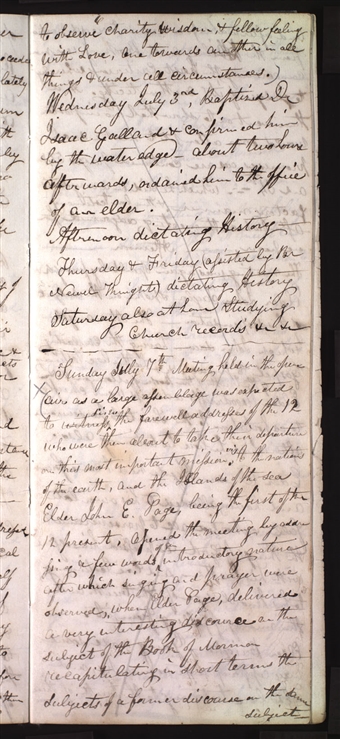 to observe charity wisdom & fellow feeling
with Love, one towards another in all
things & under all circumstances.)
Wednesday July 3rd, Baptized Dr
Isaac Galland & confirmed him
by the water edge) about two hours
afterwards, ordained him to the office
of an elder.
Afternoon dictating History
Thursday & Friday assisted by Br
Newel Knight) dictating History
Saturday also at home Studying
Church records &c &c
Sunday July 7th Meeting held in the open
air as a large assemblage was expected
to witness the farewell addresses of the 12
who were then about to take their departure
on this most important mission, to the nations
of the earth, and the Islands of the sea
Elder John E. Page, being the first of the
12 present, opened the meeting by addres
sing a few words of introductory nature
after which singing and prayer were
observed, when Elder Page, delivered
a very interesting discource on the
subject of the Book of Mormon
recapitulating in short terms the
subjects of a former discourse on the same
subject